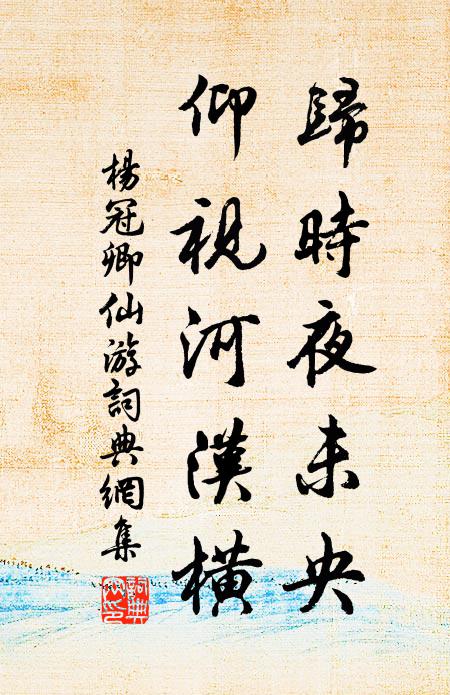 歸時夜未央
仰視河漢橫
楊冠卿仙游詞典網集